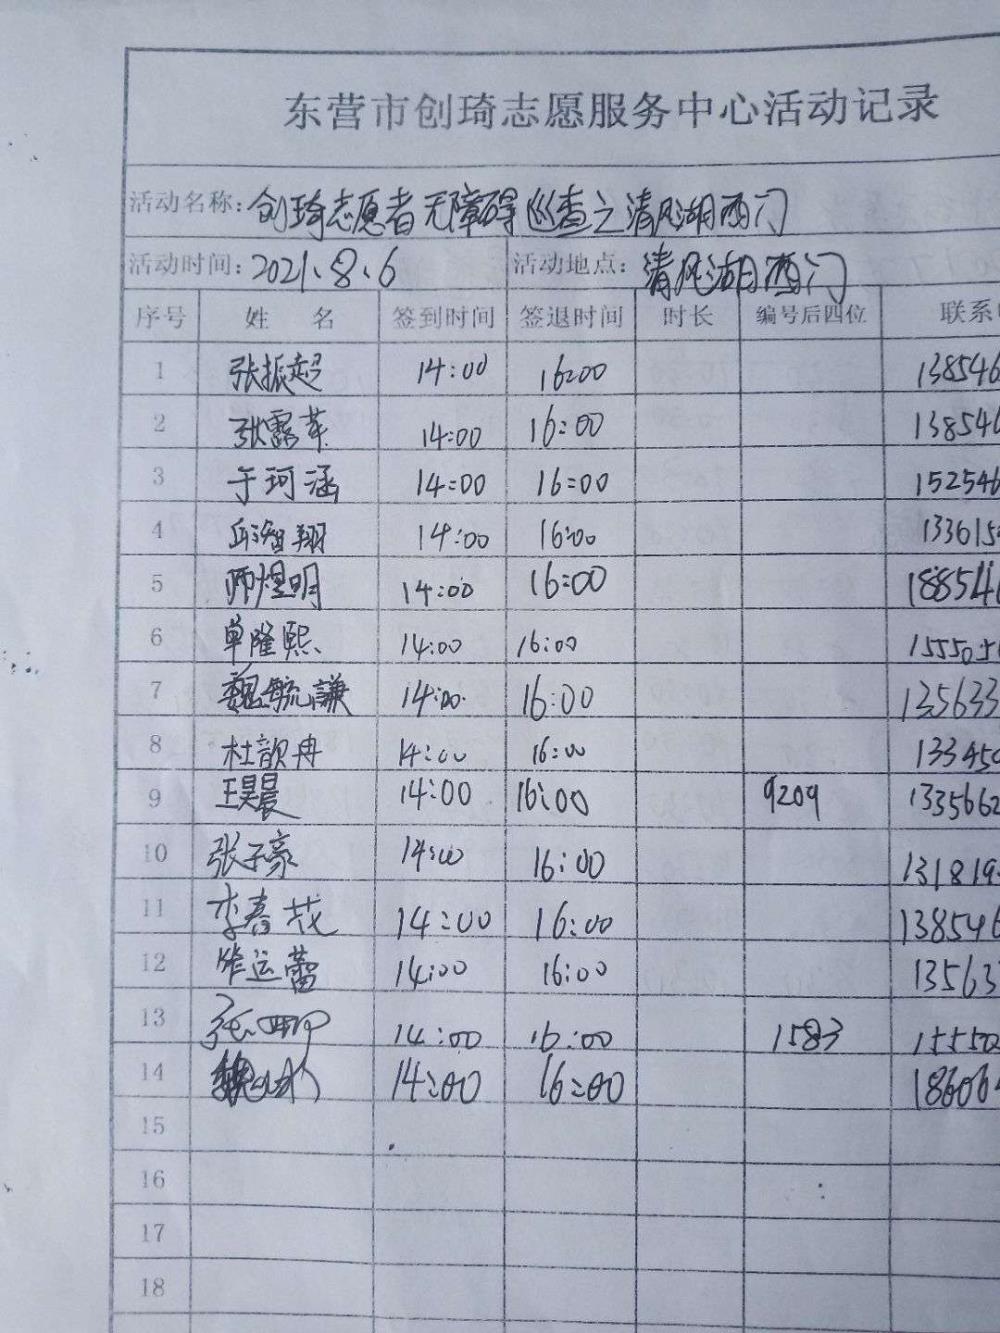 东营市创琦志愿服务中心活动记录
活动名称: 创琦志愿者无障碍巡查之清风湖西门
活动时间: 2021.8.6 活动地点: 清风湖西门
序号 姓 名 签到时间 签退时间 时长 编号后四位 联系
1 张振超 14:00 16:00 138546
2 张露苹 14:00 16:00 138546
3 于珂涵 14:00 16:00 152546
4 邱智翔 14:00 16:00 133615
5 师煜明 14:00 16:00 188546
6 单隆熙 14:00 16:00 155505
7 魏毓謙 14:00 16:00 135633
8 杜歆冉 14:00 16:00 133450
9 王昊晨 14:00 16:00 9209 1335662
10 张子豪 14:00 16:00 131819
11 李春茂 14:00 16:00 138546
12 运蕾 14:00 16:00 13563
13 张 14:00 16:00 1583 155502
14 14:00 16:00 186064
15
16
17
18